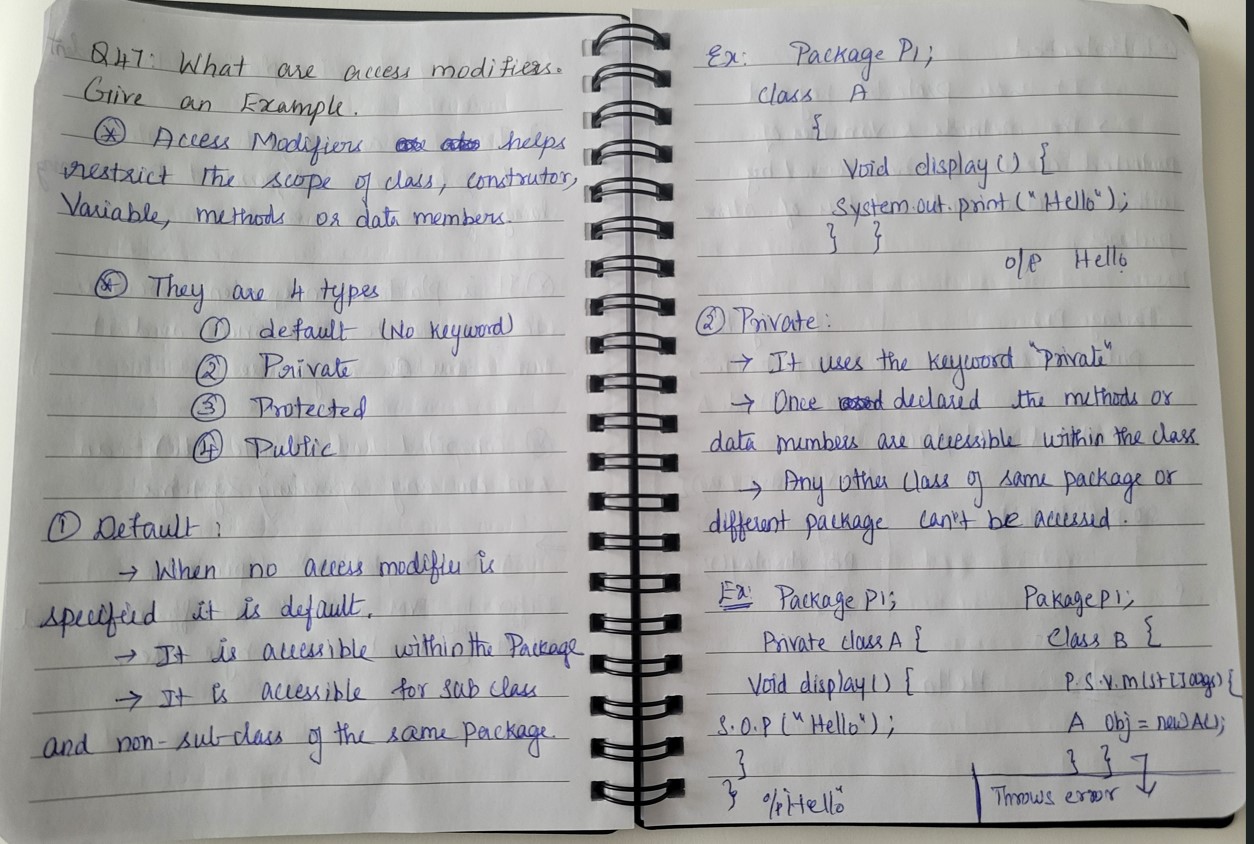 Q47: What are access modifiers.
Give an Example.
⊛ Access Modifiers helps
restrict the scope of class, construtor,
Variable, methods or data members.
⊛ They are 4 types
① default (No keyword)
② Private
③ Protected
④ Public
① Default :
→ When no access modifier is
specified it is default.
→ It is accessible within the Package
→ It is accessible for sub class
and non-sub class of the same package.
Ex: Package P1;
class A
{
Void display() {
System.out.print("Hello");
} }
o/p Hello
② Private :
→ It uses the keyword "Private"
→ Once declared the methods or
data members are accessible within the class
→ Any other class of same package or
different package can't be accessed.
Ex: Package P1; Pakage P1;
Private class A { Class B {
Void display() { P.S.V.m(st[]args) {
S.O.P("Hello"); A obj = new A();
} } }
} o/p "Hello" Throws error